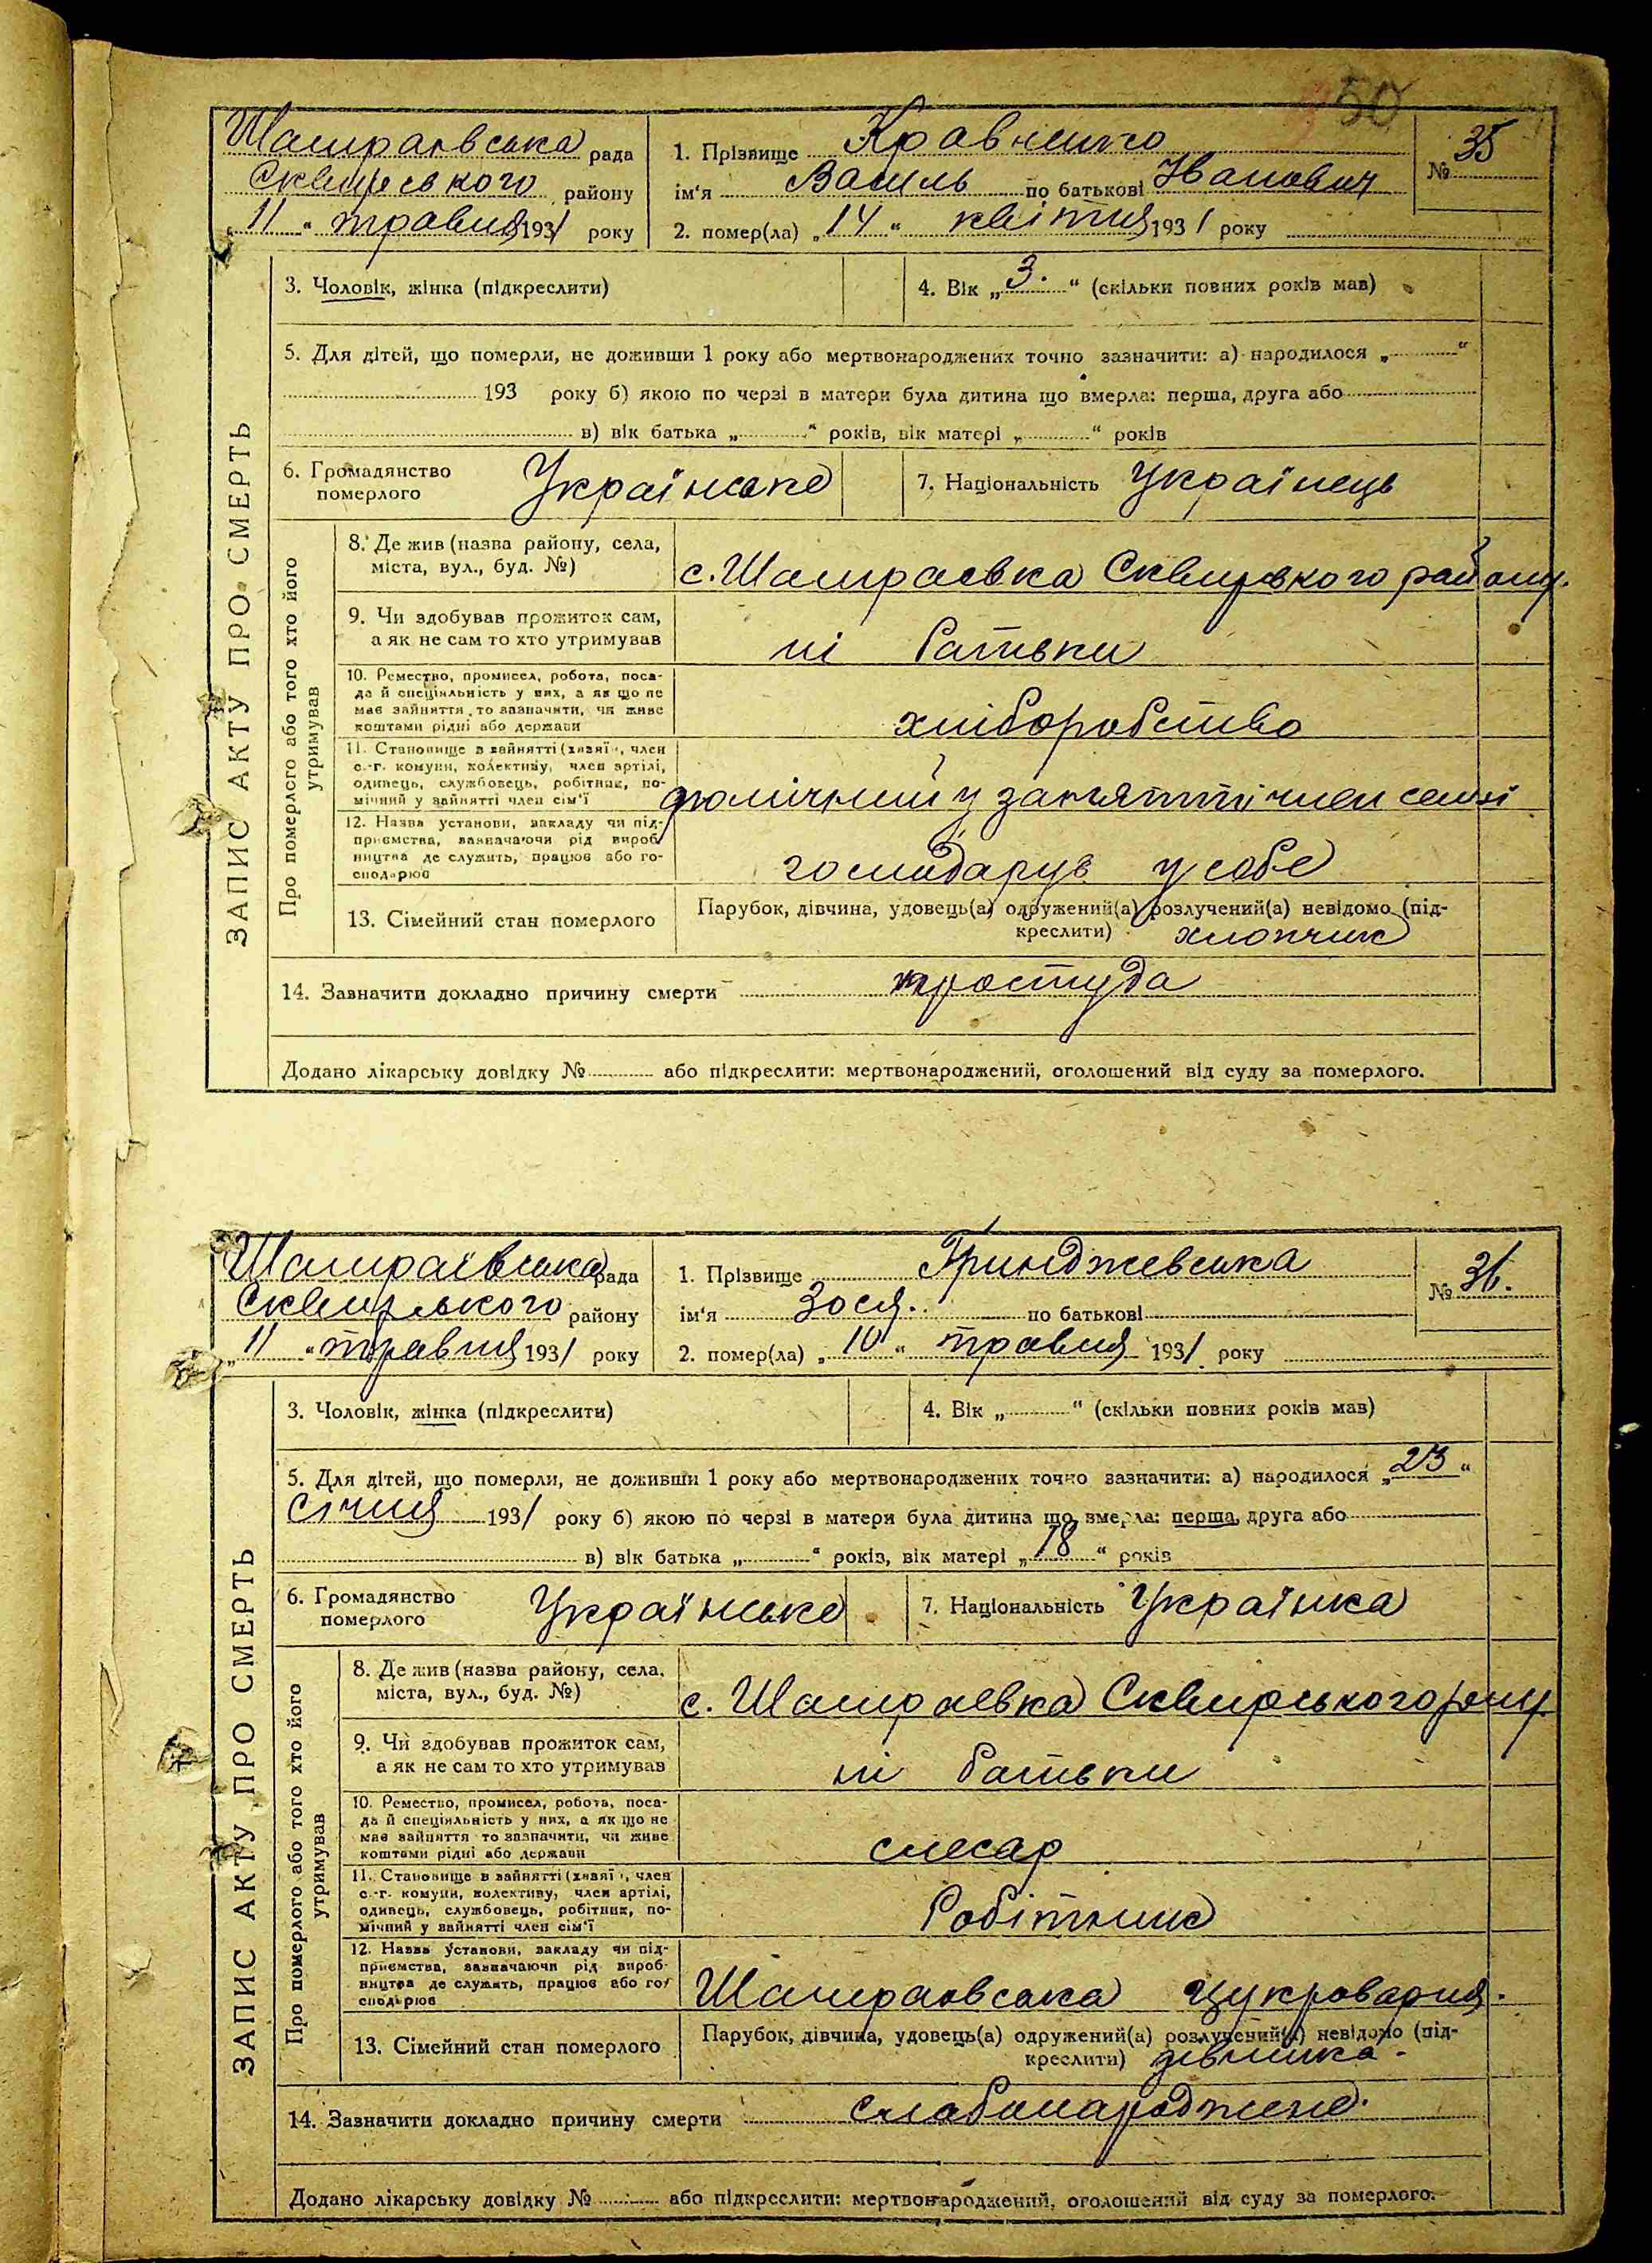 50
Шамраєвська рада
Сквирського району
„11“ травня 1931 року
1. Прізвище Кравченко
ім'я Василь по батькові Іванович
2. помер(ла) „14“ квітня 1931 року
№ 35
ЗАПИС АКТУ ПРО СМЕРТЬ
3. Чоловік, жінка (підкреслити)
4. Вік „3.“ (скільки повних років мав)
5. Для дітей, що померли, не доживши 1 року або мертвонароджених точно зазначити: а) народилося „ “
193 року б) якою по черзі в матери була дитина що вмерла: перша, друга або
в) вік батька „ “ років, вік матері „ “ років
6. Громадянство померлого Українське
7. Національність Українець
Про померлого або того хто його утримував
8. Де жив (назва району, села,
міста, вул., буд. №) с. Шамраєвка Сквирського району.
9. Чи здобував прожиток сам,
а як не сам то хто утримував ні батьки
10. Ремество, промисел, робота, поса-
да й спеціяльність у них, а як що не
має зайняття то зазначити, чи живе
коштами рідні або держави хліборобство
11. Становище в зайнятті (хазяї , член
с.-г. комуни, колективу, член артілі,
одинець, службовець, робітник, по-
мічний у зайнятті член сім'ї помічний у заняттті член семї
12. Назва установи, закладу чи під-
приємства, зазначаючи рід вироб
ництва де служить, працює або го-
сподарює господарує у себе
13. Сімейний стан померлого
Парубок, дівчина, удовець(а) одружений(а) розлучений(а) невідомо (під-
креслити) хлопчик
14. Зазначити докладно причину смерти простуда
Додано лікарську довідку № або підкреслити: мертвонароджений, оголошений від суду за померлого.
Шамраївська рада
Сквирського району
„11“ травня 1931 року
1. Прізвище Гринджевська
ім'я Зося. по батькові
2. помер(ла) „10“ травня 1931 року
№ 36.
ЗАПИС АКТУ ПРО СМЕРТЬ
3. Чоловік, жінка (підкреслити)
4. Вік „ “ (скільки повних років мав)
5. Для дітей, що померли, не доживши 1 року або мертвонароджених точно зазначити: а) народилося „23“
Січня 1931 року б) якою по черзі в матери була дитина що вмерла: перша, друга або
в) вік батька „ “ років, вік матері „18“ років
6. Громадянство померлого Українське
7. Національність Українка
Про померлого або того хто його утримував
8. Де жив (назва району, села,
міста, вул., буд. №) с. Шамраєвка Сквирського р-ну.
9. Чи здобував прожиток сам,
а як не сам то хто утримував ні батьки
10. Ремество, промисел, робота, поса-
да й спеціяльність у них, а як що не
має зайняття то зазначити, чи живе
коштами рідні або держави слесар
11. Становище в зайнятті (хазяї , член
с.-г. комуни, колективу, член артілі,
одинець, службовець, робітник, по-
мічний у зайнятті член сім'ї Робітник
12. Назва установи, закладу чи під-
приємства, зазначаючи рід вироб-
ництва де служить, працює або го-
сподарює Шамраовська цукроварня.
13. Сімейний стан померлого
Парубок, дівчина, удовець(а) одружений(а) розлучений(а) невідомо (під-
креслити) дівчинка.
14. Зазначити докладно причину смерти слабонароджене.
Додано лікарську довідку № або підкреслити: мертвонароджений, оголошений від суду за померлого.